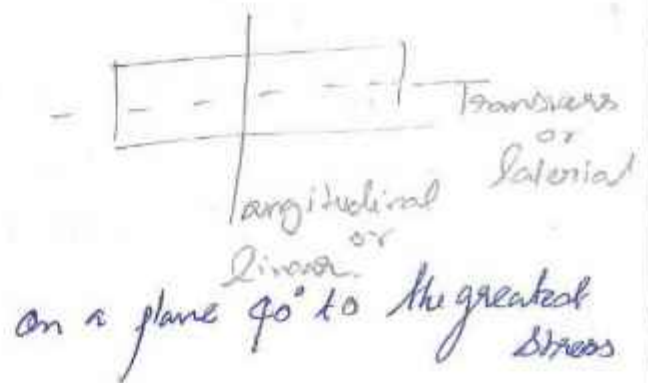 Transvers
or
Laterial
Longitudinal
or
linear.
on a plane 90° to the greatest
stress